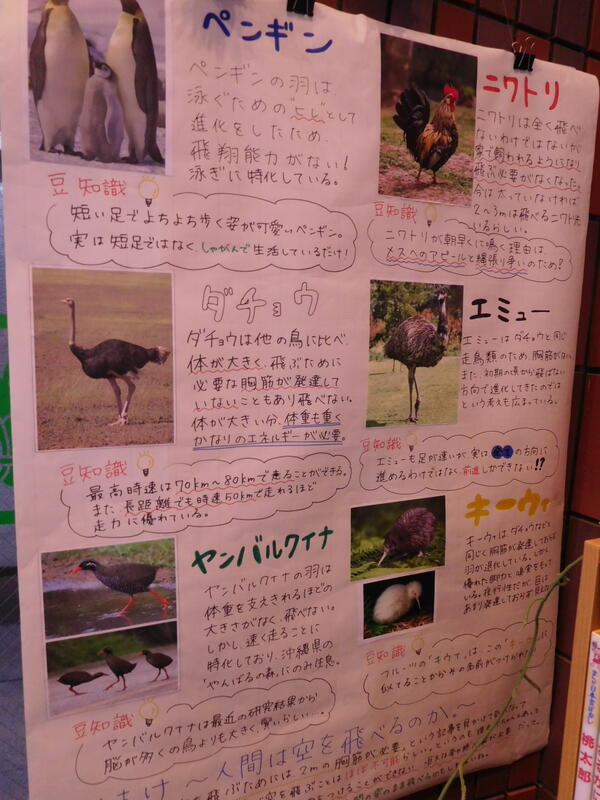 ペンギン
ペンギンの羽は、
泳ぐための"ヒレ"として
進化をしたため、
飛翔能力がない!
泳ぎに特化している。
豆知識
短い足でよちよち歩く姿が可愛いペンギン。
実は短足ではなく、しゃがんで生活しているだけ!
ニワトリ
ニワトリは全く飛べ
ないわけではないが
家で飼われるようになり
飛ぶ必要がなくなった。
今は太っていなければ
2〜3mは飛べるニワトリも
いるらしい。
豆知識
ニワトリが朝早くに鳴く理由は
メスへのアピールと縄張り争いのため?
ダチョウ
ダチョウは他の鳥に比べ、
体が大きく、飛ぶために
必要な胸筋が発達して
いないこともあり飛べない。
体が大きい分、体重も重く
かなりのエネルギーが必要。
豆知識
最高時速は70km〜80kmで走ることができる。
また、長距離でも時速50kmで走れるほど
走力に優れている。
エミュー
エミューはダチョウと同じ
走鳥類のため、胸筋がない。
また、初期の頃から飛ばない
方向で進化してきたのでは
という考えも広まっている。
豆知識
エミューも足が速いが、実は全ての方向に
進めるわけではなく、前進しかできない!?
ヤンバルクイナ
ヤンバルクイナの羽は
体重を支えきれるほどの
大きさがなく、飛べない。
しかし、速く走ることに
特化しており、沖縄県の
「やんばるの森」にのみ生息。
豆知識
ヤンバルクイナは最近の研究結果から
脳が多くの鳥よりも大きく、賢いらしい…。
キーウィ
キーウィはダチョウなどと
同じく胸筋が発達しておらず
羽が退化している。しかし
優れた脚力と嗅覚をもって
いる。夜行性だが、目は
あまり発達しておらず
豆知識
フルーツの「キウイ」は、この「キーウィ」に
似てることからその名前が付けられた。
〜人間は空を飛べるのか。〜
飛ぶためには、2mの胸筋が必要。という記事を見かけて
空を飛ぶことはほぼ不可能らしい。
桃太郎